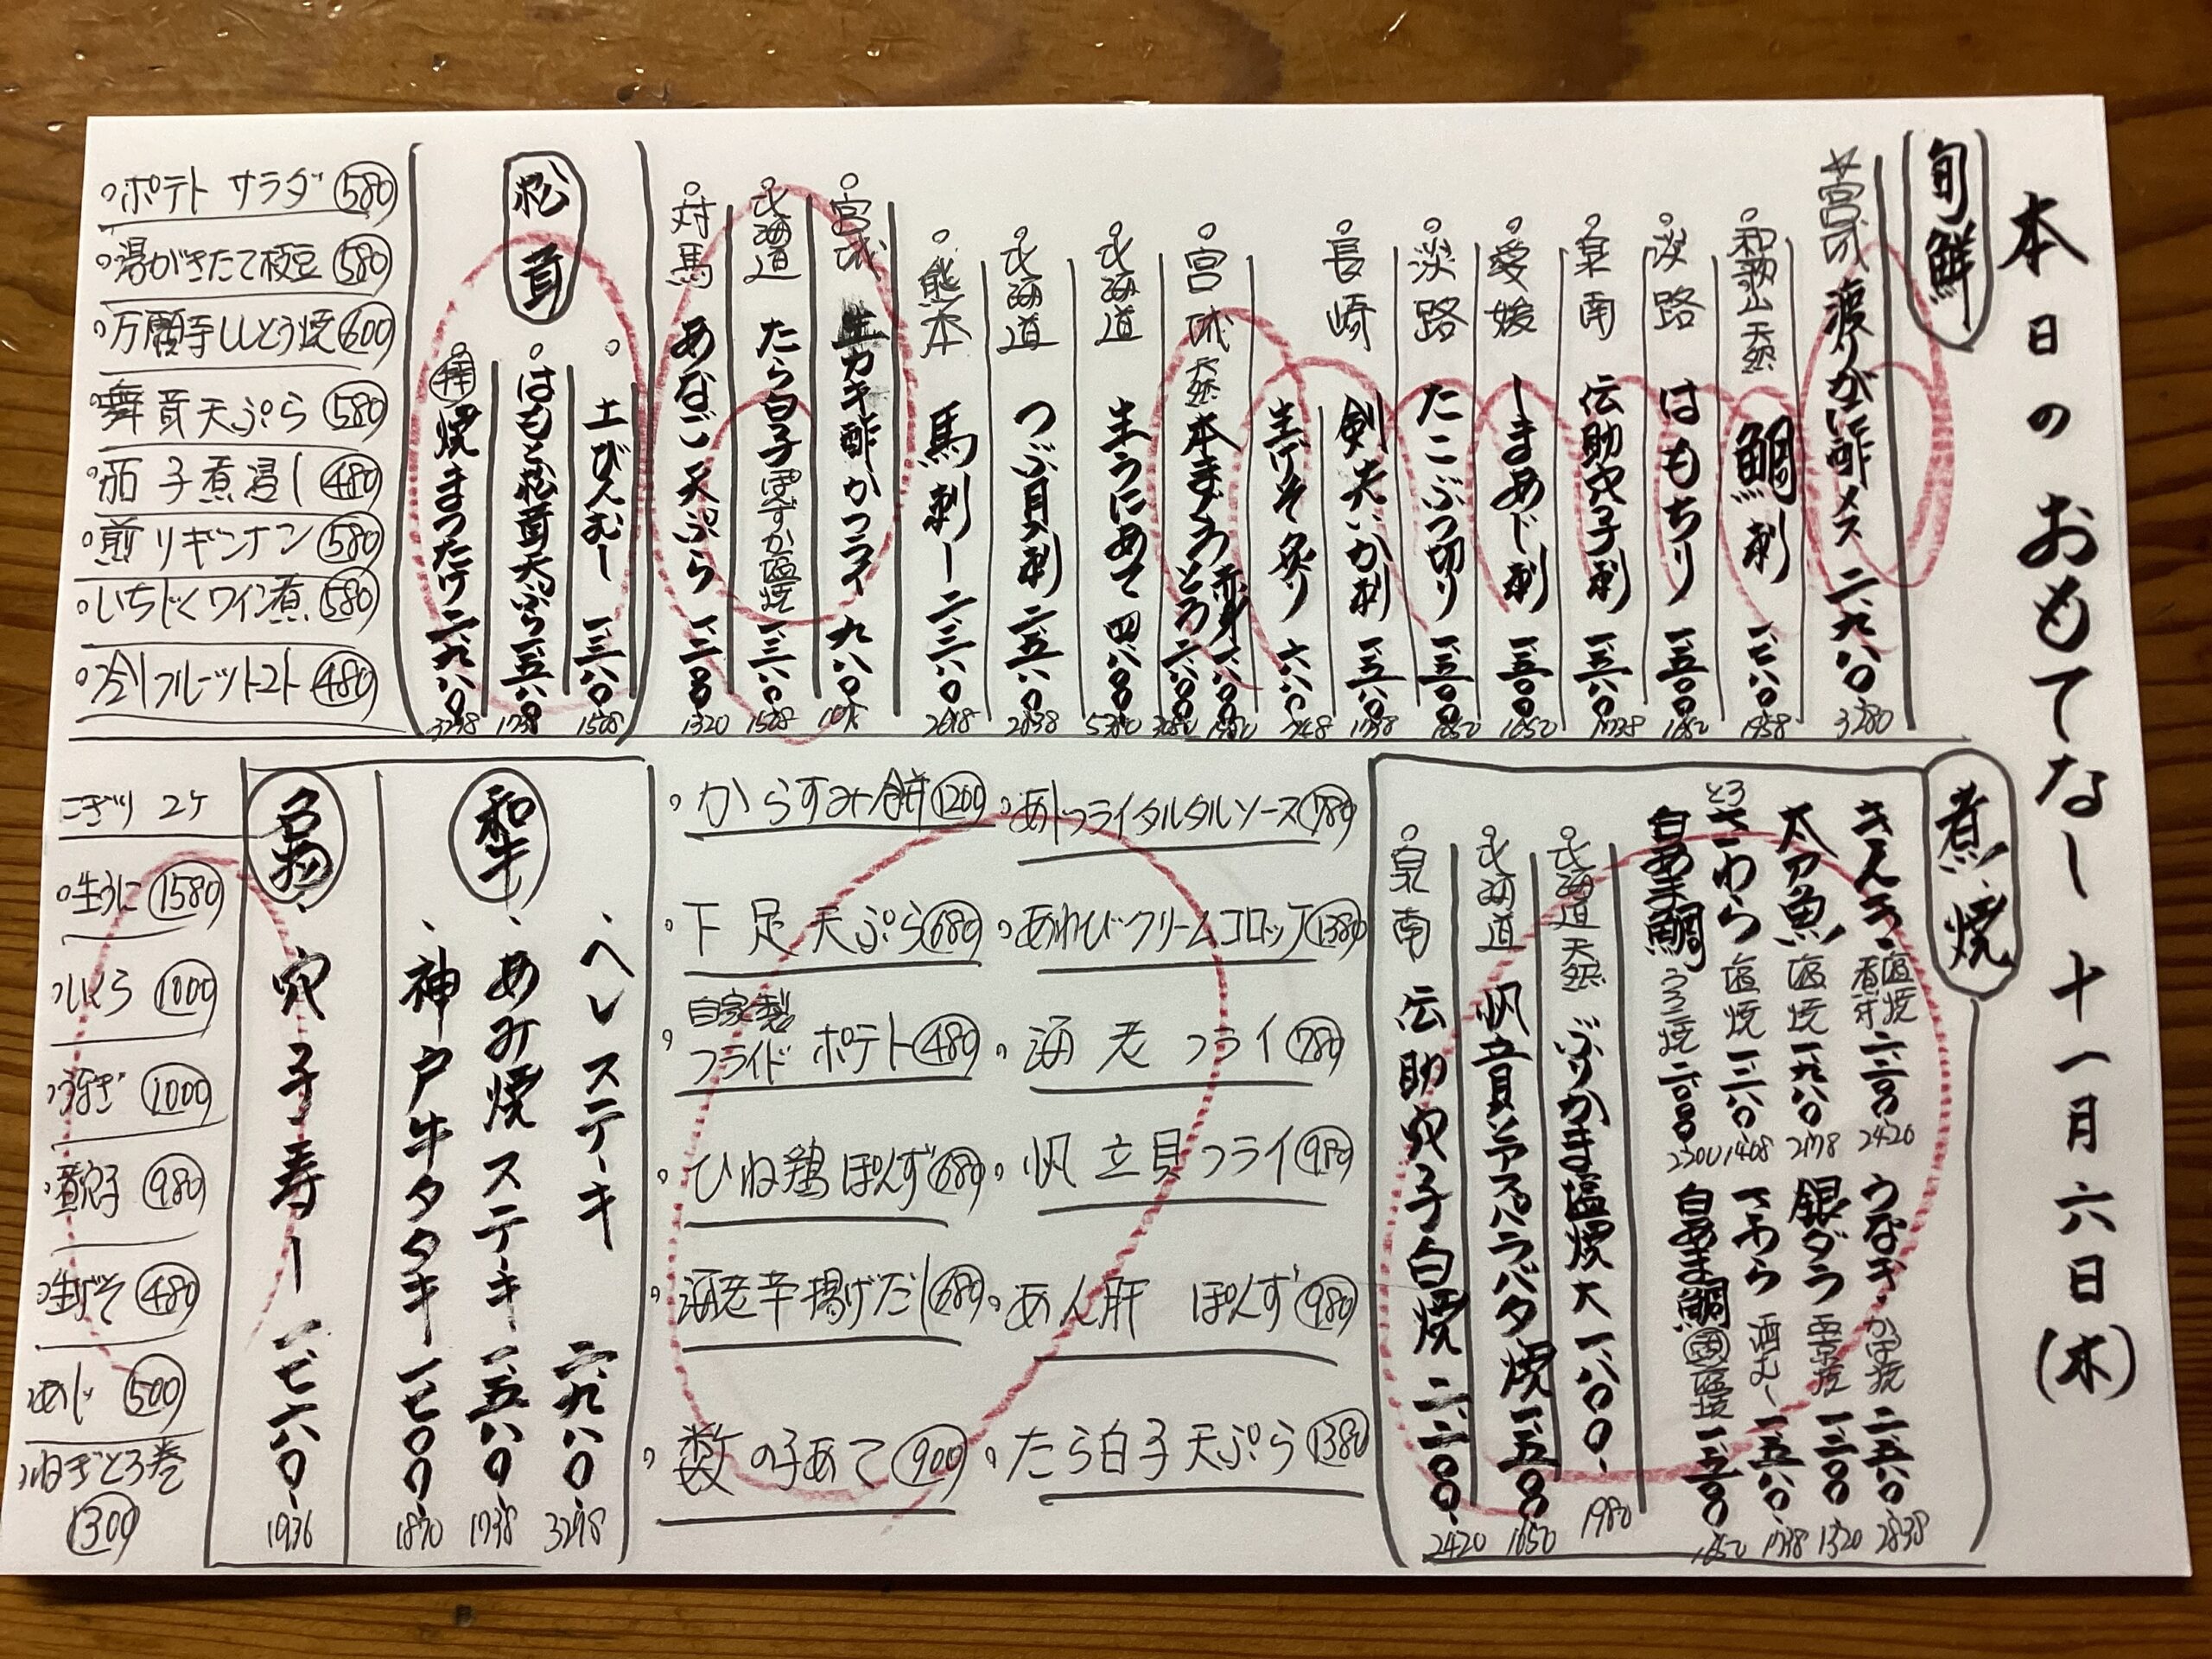 本日のおもてなし 十一月六日(木)
旬鮮
☆宮城 渡りがに酢 メス 二、九八〇 3280
和歌山 天然 鯛刺 一、七八〇 1958
淡路 はもちり 一、五〇〇 1650
泉南 伝助穴子刺 一、五八〇 1738
愛媛 しまあじ刺 一、五〇〇 1650
淡路 たこぶつ切り 一、五〇〇 1650
長崎 剣先いか刺 一、五八〇 1738
生げそ炙り 六八〇 748
宮城 天然 本まぐろ 赤身 一、八〇〇 1980
とろ 二、八〇〇 3080
北海道 生うにあて 四、八〇〇 5280
北海道 つぶ貝刺 二、五八〇 2838
熊本 馬刺し 二、三八〇 2618
宮城 生カキ 酢かフライ 九八〇 1078
北海道 たら白子 ぽんずか塩焼 一、三八〇 1518
対馬 あなご天ぷら 一、二〇〇 1320
松茸
土びんむし 一、三八〇 1518
はもと松茸天ぷら 一、五八〇 1738
焼まつたけ 二、九八〇 3278
ポテトサラダ 580
湯がきたて枝豆 580
万願寺ししとう焼 600
舞茸天ぷら 580
茄子煮浸し 480
煎りギンナン 580
いちじくワイン煮 580
冷しフルーツトマト 480
煮・焼
きんき 塩焼 煮付 二、二〇〇 2420
太刀魚 塩焼 一、九八〇 2178
とろさわら 塩焼 一、二八〇 1408
白あま鯛 うろこ焼 二、〇〇〇 2200
うなぎ かば焼 二、五八〇 2838
銀ダラ 西京焼 一、二〇〇 1320
さわら 酒むし 一、五八〇 1738
白あま鯛 塩焼 一、五〇〇 1650
北海道 天然 ぶりかま塩焼 大 一、八〇〇 1980
北海道 帆立貝とアスパラバター焼 一、五〇〇 1650
泉南 伝助穴子白焼 二、二〇〇 2420
からすみ餅 1200
下足天ぷら 680
自家製フライドポテト 480
ひね鶏ぽんず 680
海老芋揚げだし 680
数の子あて 900
あじフライタルタルソース 780
あわびクリームコロッケ 1380
海老フライ 780
帆立貝フライ 980
あん肝 ぽんず 980
たら白子天ぷら 1380
和牛
ヘレステーキ 二、九八〇 3278
あみ焼ステーキ 一、五八〇 1738
神戸牛タタキ 一、七〇〇 1870
穴子寿し 一、七六〇 1936
にぎり 2ヶ
生うに 1580
いくら 1000
うなぎ 1000
煮穴子 980
生げそ 480
あじ 500
ねぎとろ巻 1300